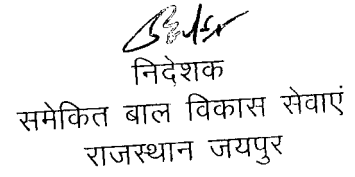 निदेशक
समेकित बाल विकास सेवाएं
राजस्थान जयपुर